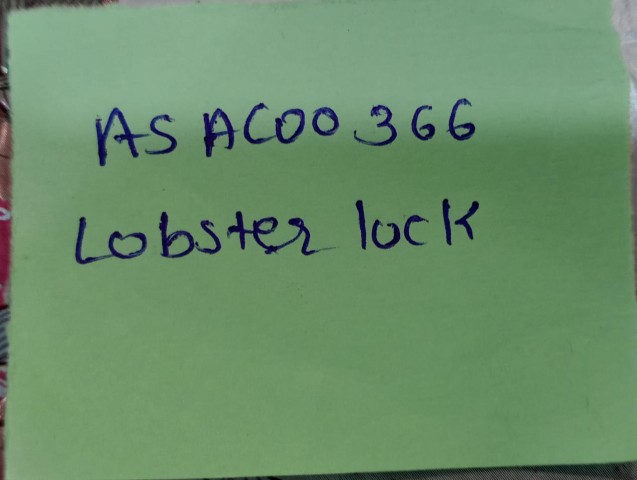 ASAC00366
Lobster lock